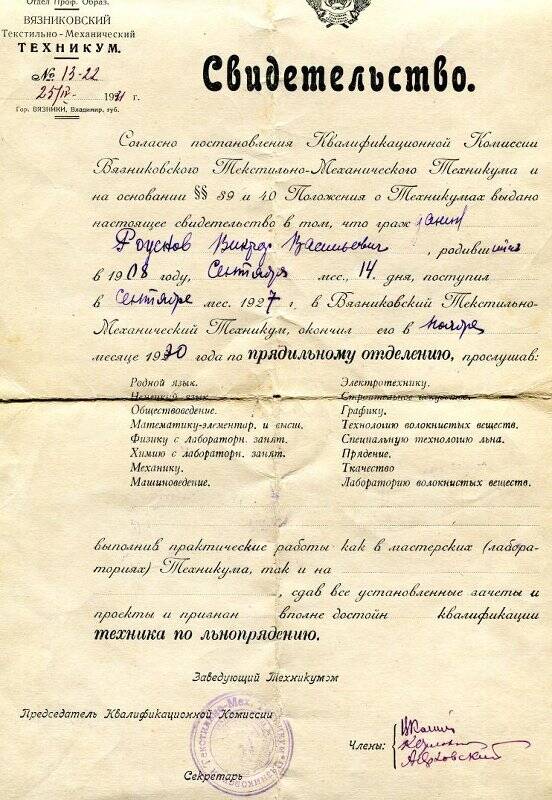 Отдел Проф. Образ.
ВЯЗНИКОВСКИЙ
Текстильно-Механический
ТЕХНИКУМ.
№ 13-22
25/IV- 1931 г.
Гор. ВЯЗНИКИ, Владимир. губ.
Свидетельство.
Согласно постановления Квалификационной Комиссии
Вязниковского Текстильно-Механического Техникума и
на основании §§ 39 и 40 Положения о Техникумах выдано
настоящее свидетельство в том, что гражданин
Виктор Васильевич, родивш
в 1908 году, Сентября мес., 14. дня, поступил
в Сентябре мес. 1927 г. в Вязниковский Текстильно-
Механический Техникум, окончил его в Ноябре
месяце 1930 года по прядильному отделению, прослушав:
Родной язык.
Немецкий язык.
Обществоведение.
Математику-элементир. и высш.
Физику с лабораторн. занят.
Химию с лаборатрн. занят.
Механику.
Машиноведение.
Электротехнику.
Строительное искусство.
Графику.
Технологию волокнистых веществ.
Специальную технологию льна.
Прядение.
Ткачество
Лабораторию волокнистых веществ.
выполнив практические работы как в мастерских (лабора-
ториях) Техникума, так и на
, сдав все установленные зачеты и
проекты и признан вполне достойн квалификации
техника по льнопрядению.
Заведующий Техникумэм
Председатель Квалификационной Комиссии
Члены:
Секретарь